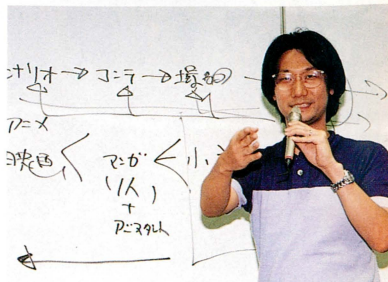 ナリオ→コンテ→撮
アニメ
映画 < マンガ < 小
(1人)
+
アシスタント